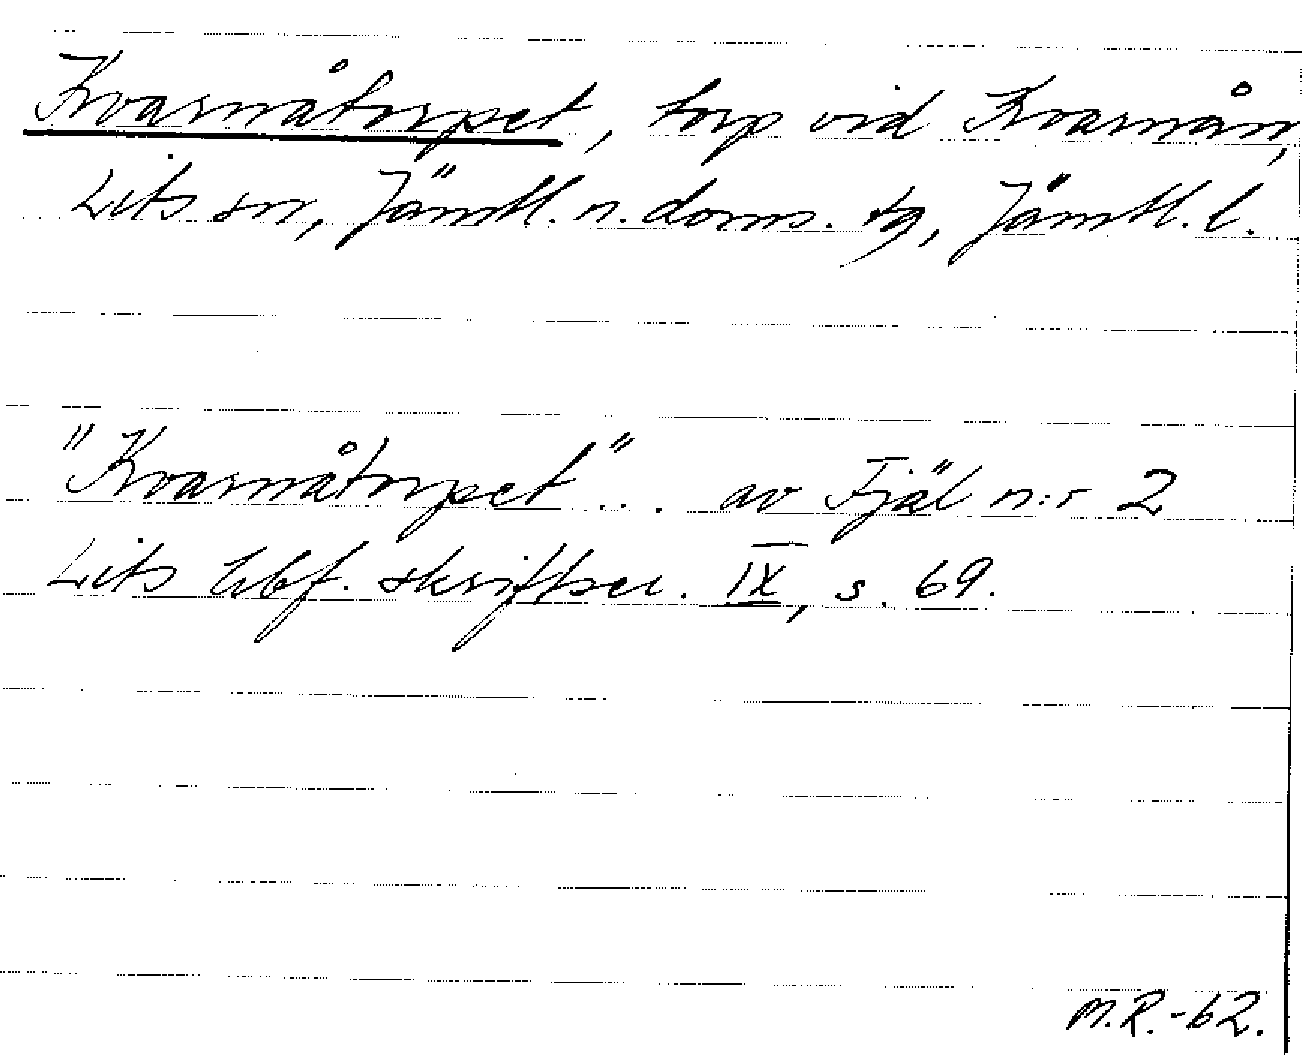 Kvarnåtorpet, torp vid Kvarnån,
Lits sn, Jämtl. n. doms. tg, Jämtl. l.
"Kvarnåtorpet" ... av Fjäl n:r 2
Lits hbf. skriftser. IX, s. 69.
M.R.-62.